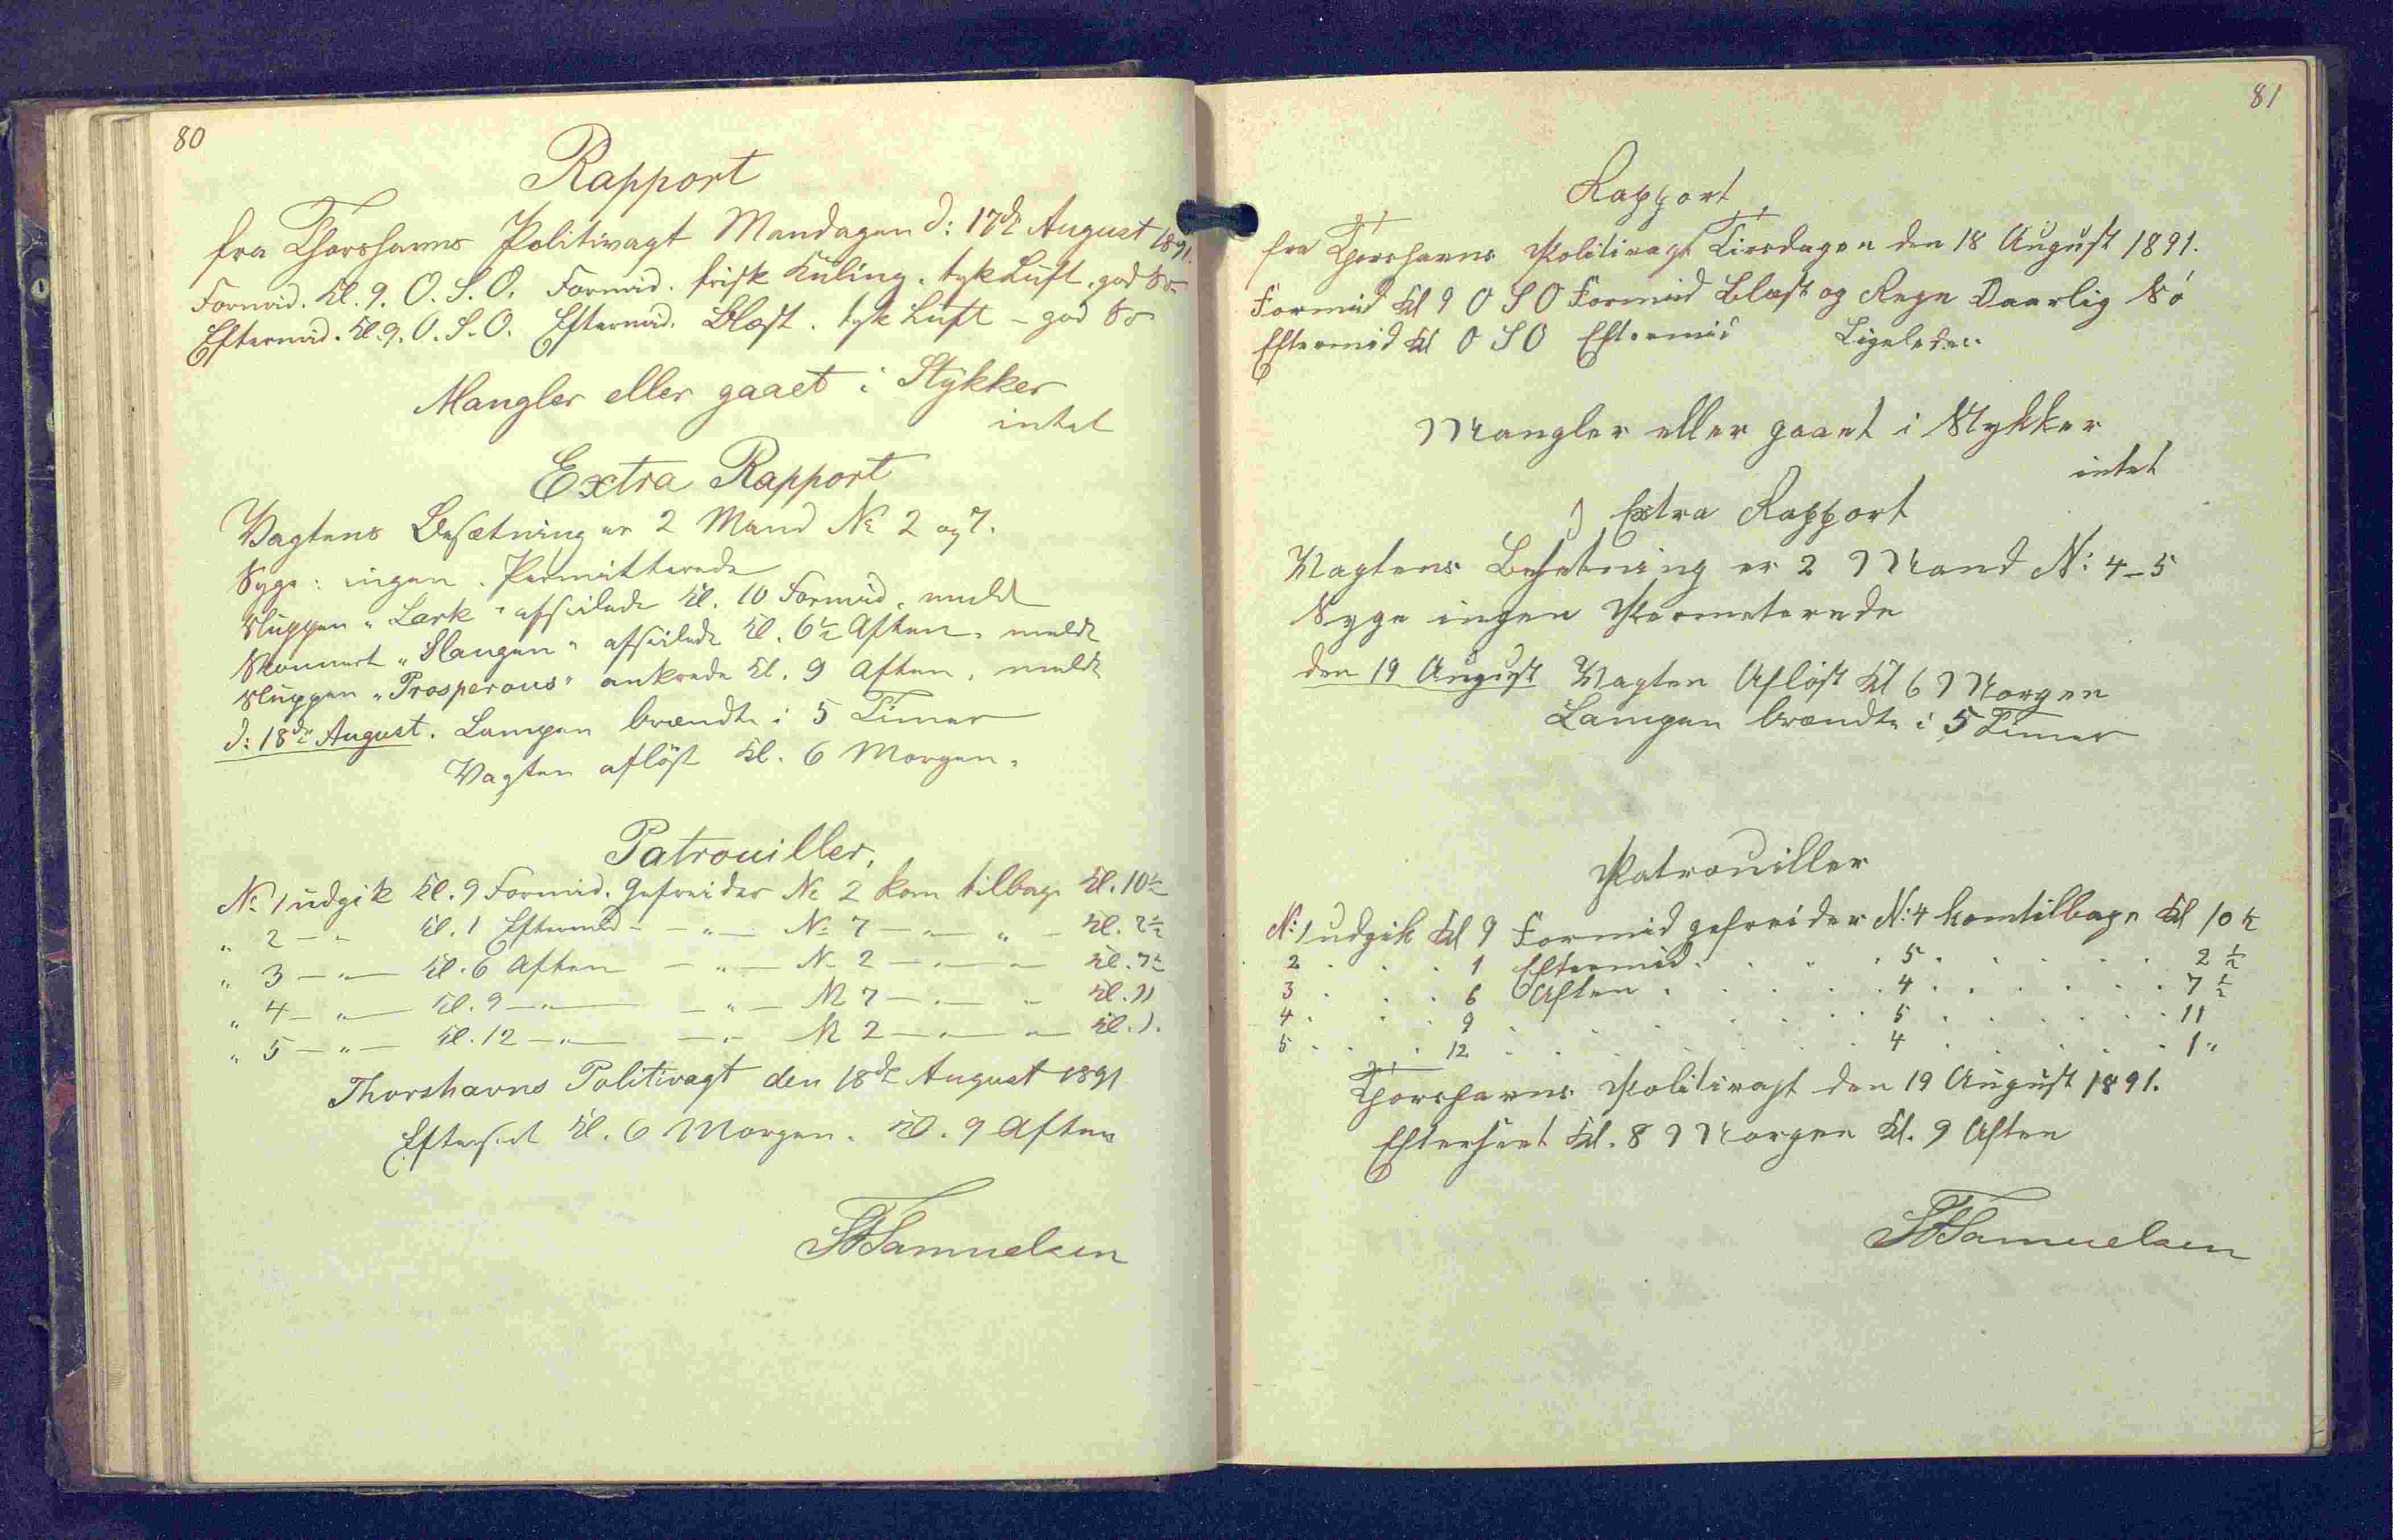 80
Rapport
fra Thorshavns Politivagt Mandagen d: 17de August 1891.
Formid. Kl. 9. O. S. O. Formid. frisk Kuling. tyk Luft. god Sö
Eftermid. Kl. 9. O. S. O. Eftermid. Blæst. tyk Luft - god Sö
Mangler eller gaaet i Stykker
intet
Extra Rapport
Vagtens Besætning er 2 Mand No 2 og 7.
Syge: ingen. Permitterede
Sluppen "Lark" afseilede Kl. 10 Formid. meldt
Skonnert "Slangen" afseilede Kl. 6½ Aften. meldt
Sluppen "Prosperous" ankrede Kl. 9 Aften. meldt
d: 18de August. Lampen brændte i 5 Timer
Vagten aflöst Kl. 6 Morgen.
Patrouiller.
No 1 udgik Kl. 9 Formid. Gefreider No 2 kom tilbage Kl. 10½
" 2 - " Kl. 1 Eftermid - - " - No 7 - " - " - Kl. 2½
" 3 - " - Kl. 6 Aften - " - No 2 - " - Kl. 7½
" 4 - " - Kl. 9 - " - - " - No 7 - " - " - Kl. 11
" 5 - " - Kl. 12 - " - - " No 2 - " - Kl. 1.
Thorshavns Politivagt den 18de August 1891
Efterseet Kl. 6 Morgen. Kl. 9 Aften
Samuelsen
81
Rapport
fra Thorshavns Politivagt Tirsdagen den 18 August 1891.
Formid Kl 9 O S O Formid Blæst og Regn Daarlig Sö
Eftermid Kl O S O Eftermid Ligeledes
Mangler eller gaaet i Stykker
intet
Extra Rapport
Vagtens Besetning er 2 Mand N: 4-5
Syge ingen Permeterede
den 19 August Vagten Aflöst Kl 6 Morgen
Lampen brændte i 5 Timer
Patrouiller
N: 1 udgik Kl 9 Formid gefreider N: 4 kom tilbage Kl 10 ½
2 . . . 1 Eftermid . . . . 5 . . . . . 2 ½
3 . . . 6 Aften . . . . . 4 . . . . . 7 ½
4 . . . 9 . . . . . . 5 . . . . . 11
5 . . . 12 . . . . . . 4 . . . . . 1 "
Thorshavns Politivagt den 19 August 1891.
Efterseet Kl. 8 Morgen Kl. 9 Aften
Samuelsen